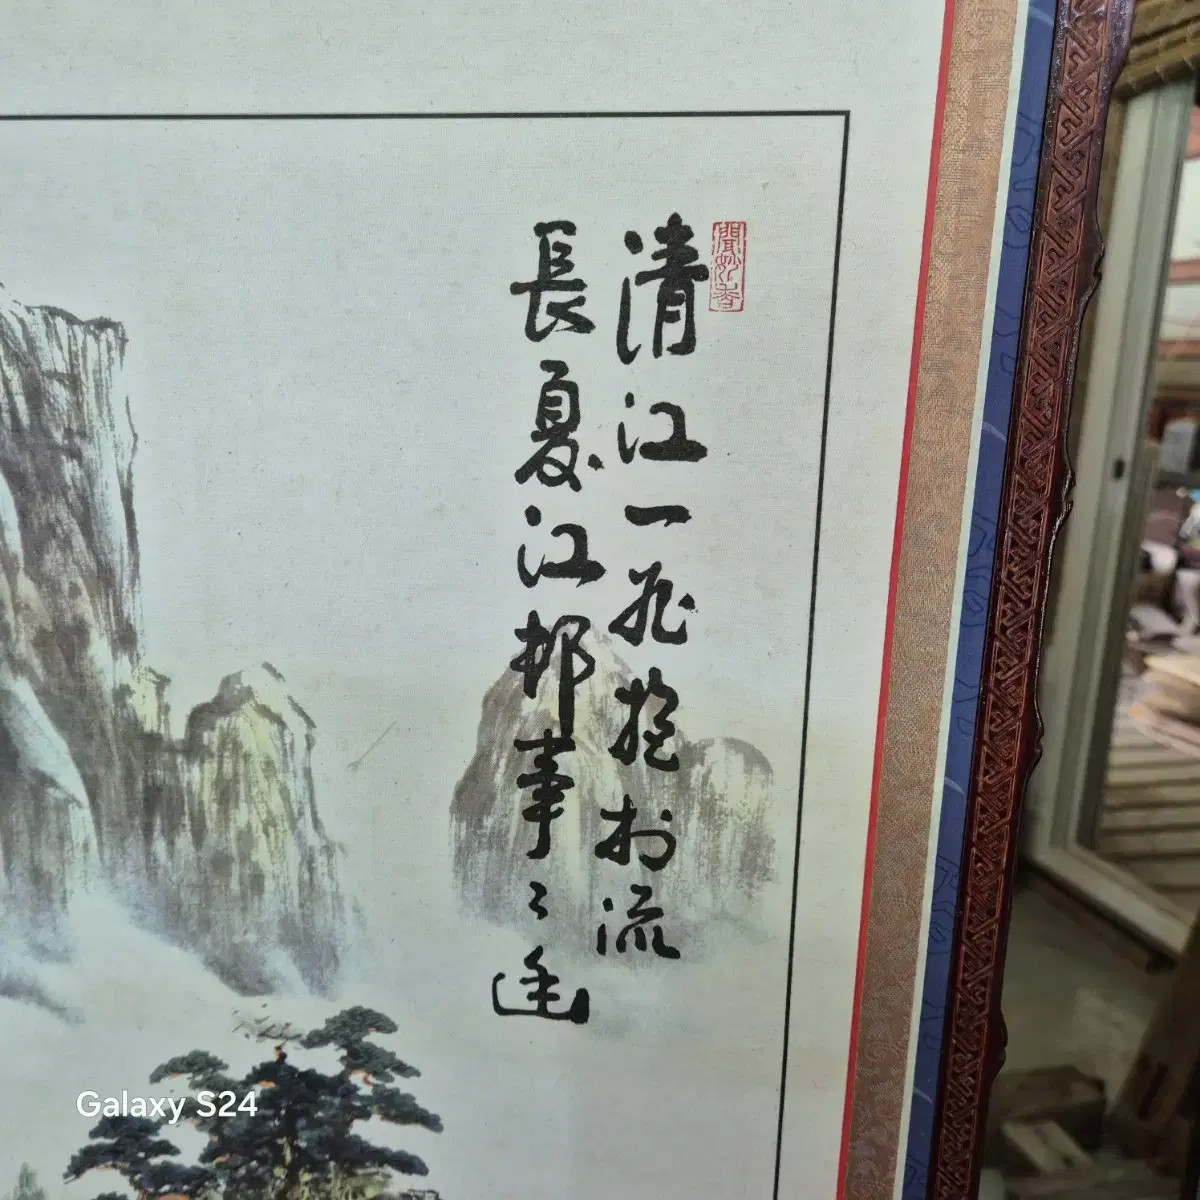 聞妙香
清江一曲抱村流
長夏江邨事〻幽
Galaxy S24